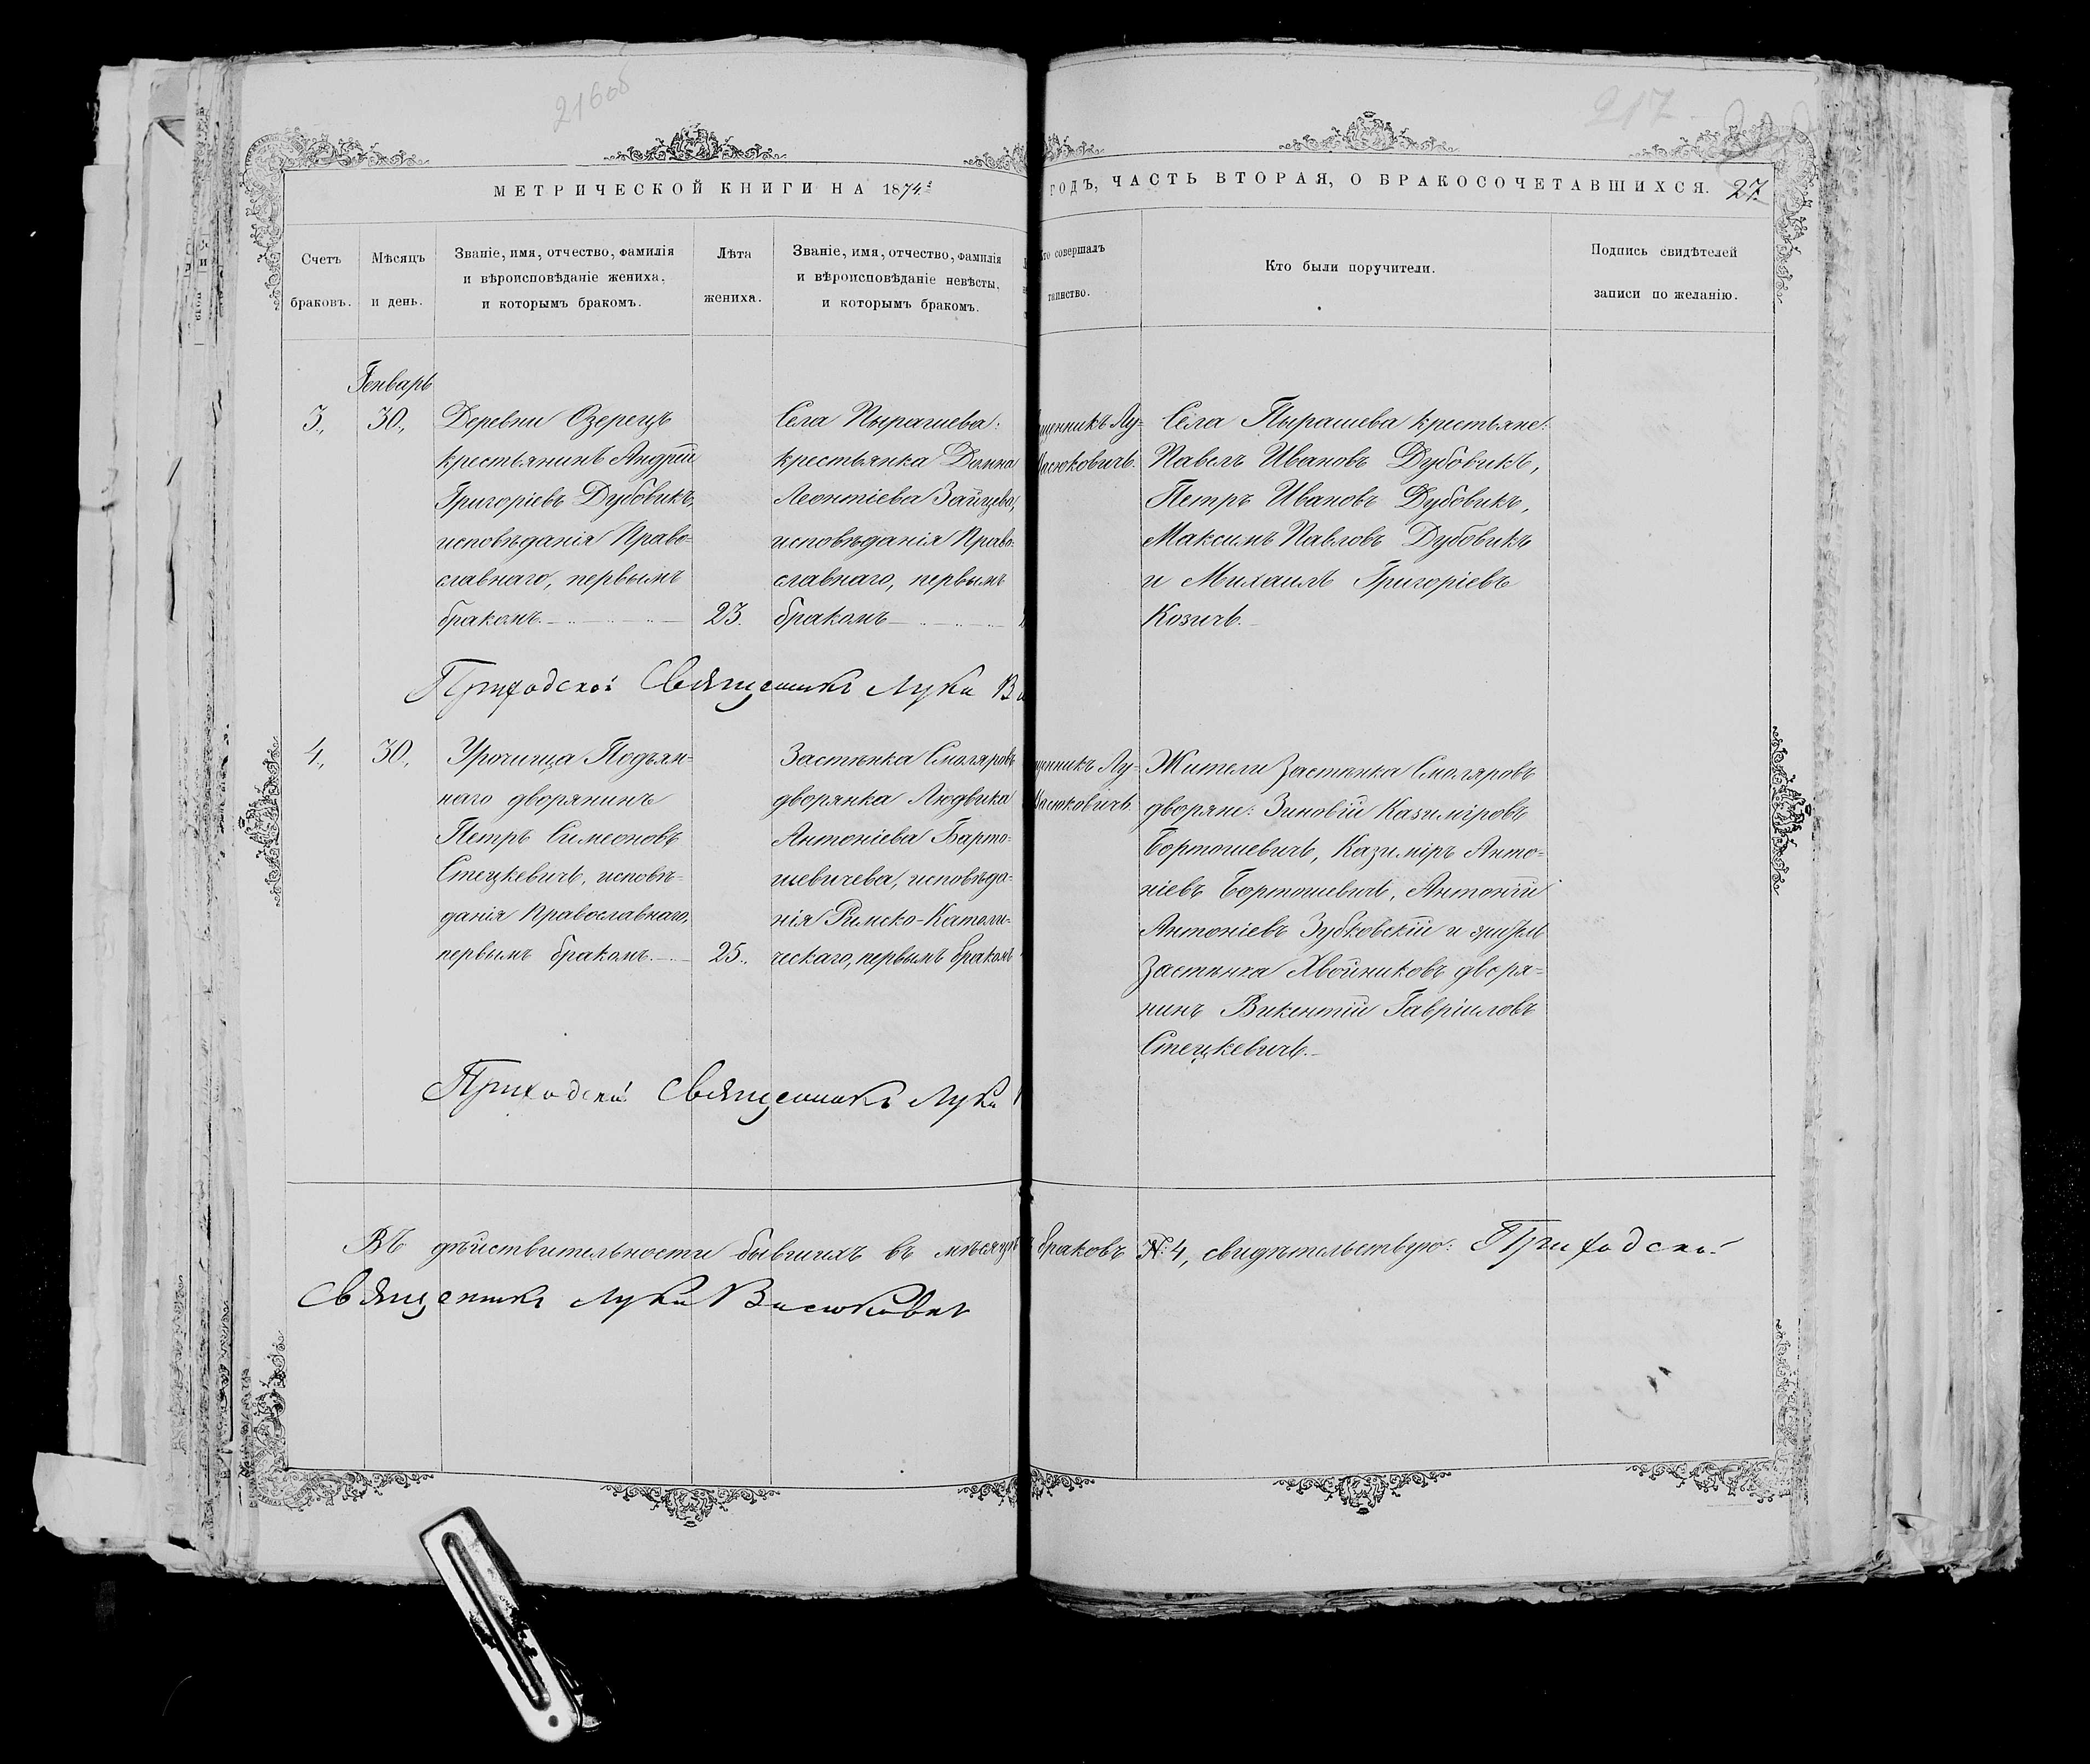 216об
217
МЕТРИЧЕСКОЙ КНИГИ НА 1874й
ГОДЪ, ЧАСТЬ ВТОРАЯ, О БРАКОСОЧЕТАВШИХСЯ. 27.
Счетъ
браковъ.
Мѣсяцъ
и день.
Званіе, имя, отчество, фамилія
и вѣроисповѣданіе жениха,
и которымъ бракомъ.
Лѣта
жениха.
Званіе, имя, отчество, фамилія
и вѣроисповѣданіе невѣсты,
и которымъ бракомъ.
то совершалъ
таинство.
Кто были поручители.
Подпись свидѣтелей
записи по желанію.
Генварь
3.,
30.,
Деревни Озерецъ
крестьянинъ Андрей
Григоріевъ Дубовикъ,
исповѣданія Право-
славнаго, первымъ
бракомъ.
23.
Села Пырашева:
крестьянка Домна
Леонтіева Зайцева,
исповѣданія Право-
славнаго, первымъ
бракомъ
щенникъ Лу-
Васюковичъ.
Села Пырашева крестьяне:
Павелъ Ивановъ Дубовикъ,
Петръ Ивановъ Дубовикъ,
Максимъ Павловъ Дубовикъ
и Михаилъ Григоріевъ
Козичъ.
Приходской Священникъ Лука Ва
4.,
30.,
Урочища Подъям-
наго дворянинъ
Петръ Симеоновъ
Стецкевичъ, исповѣ-
данія Православнаго,
первымъ бракомъ.
25.,
Застѣнка Смоляровъ
дворянка Людвика
Антоніева Барто-
шевичева, исповѣда-
нія Римско-Католи-
ческаго, первымъ бракомъ
щенникъ Лу-
Васюковичъ.
Жители Застѣнка Смоляровъ
дворяне: Зиновій Казиміровъ
Бортошевичъ, Казиміръ Анто-
ніевъ Бортошевичъ, Антоній
Антоніевъ Зубковскій и житель
Застѣнка Хвойниковъ дворя-
нинъ Викентій Гавріиловъ
Стецкевичъ.
Приходской Священникъ Лука
Въ дѣйствительности бывшихъ въ мѣсяцѣ браковъ №4, свидѣтельствую: Приходской
Священникъ Лука Васюковичъ